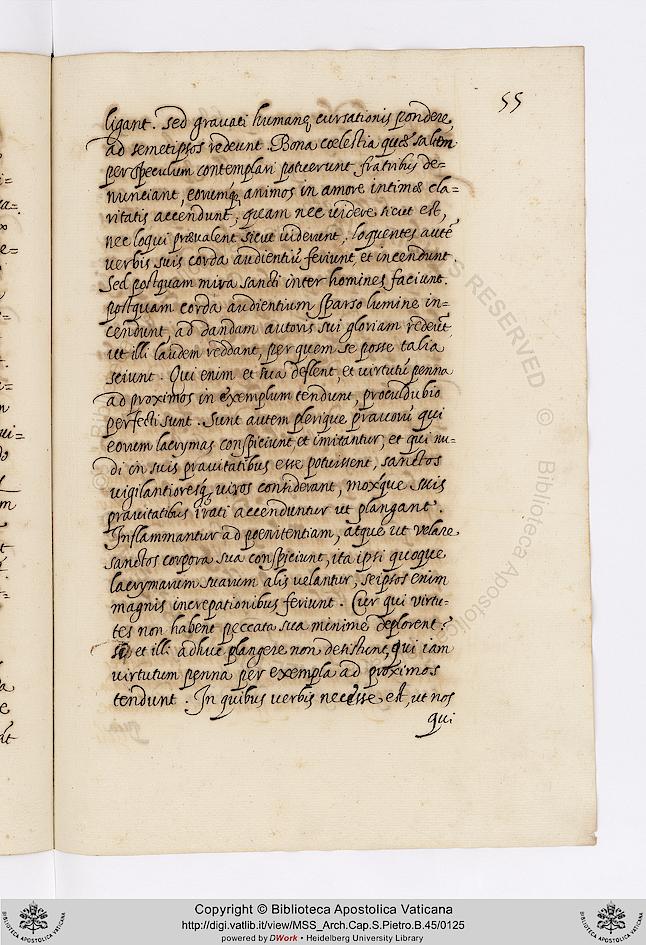 55
ligant. Sed gravati humanę cursationis pondere,
ad semetipsos redeunt. Bona cœlestia quæ saltem
per speculum contemplari potuerunt fratribus de-
nunciant, eorumq; animos in amore intimæ cla-
ritatis accendunt, quam nec videre sicut est,
nec loqui prævalent sicut viderunt, loquentes autē
verbis suis corda audientiū feriunt, et incendunt.
Sed postquam mira sancti inter homines faciunt.
postquam corda audientium sparso lumine in-
cendunt, ad dandam autoris sui gloriam redeūt,
ut illi laudem reddant, per quem se posse talia
sciunt. Qui enim et sua deflent, et virtutū penna
ad proximos in exemplum tendunt, proculdubio
perfecti sunt. Sunt autem plerique pravorū qui
eorum lacrymas conspiciunt, et imitantur, et qui nu-
di in suis pravitatibus esse potuissent, sanctos
vigilantioresq; viros considerant, moxque suis
pravitatibus irati accenduntur ut plangant.
Inflammantur ad poenitentiam, atque ut velare
sanctos corpora sua conspiciunt, ita ipsi quoque
lacrymarum suarum alis velantur, seipsos enim
magnis increpationibus feriunt. Cur qui virtu-
tes non habent peccata sua minime deplorent?
si et illi adhuc plangere non desistunt, qui iam
virtutum penna per exempla ad proximos
tendunt. In quibus verbis necesse est, ut nos
qui
© Biblioteca Apostolica
RIGHTS RESERVED
Copyright © Biblioteca Apostolica Vaticana
http://digi.vatlib.it/view/MSS_Arch.Cap.S.Pietro.B.45/0125
powered by DWork • Heidelberg University Library